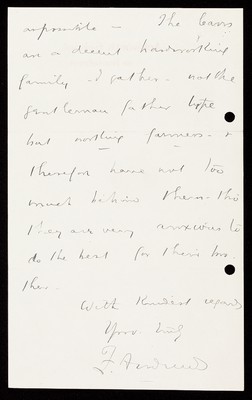 impossible — The Carrs
are a decent hardworking
family - I gather - not the
gentleman father type
but working farmers - &
therefore have not too
much behind them - tho
they are very anxious to
do the best for their bro-
ther.
With kindest regards
Yours
F.